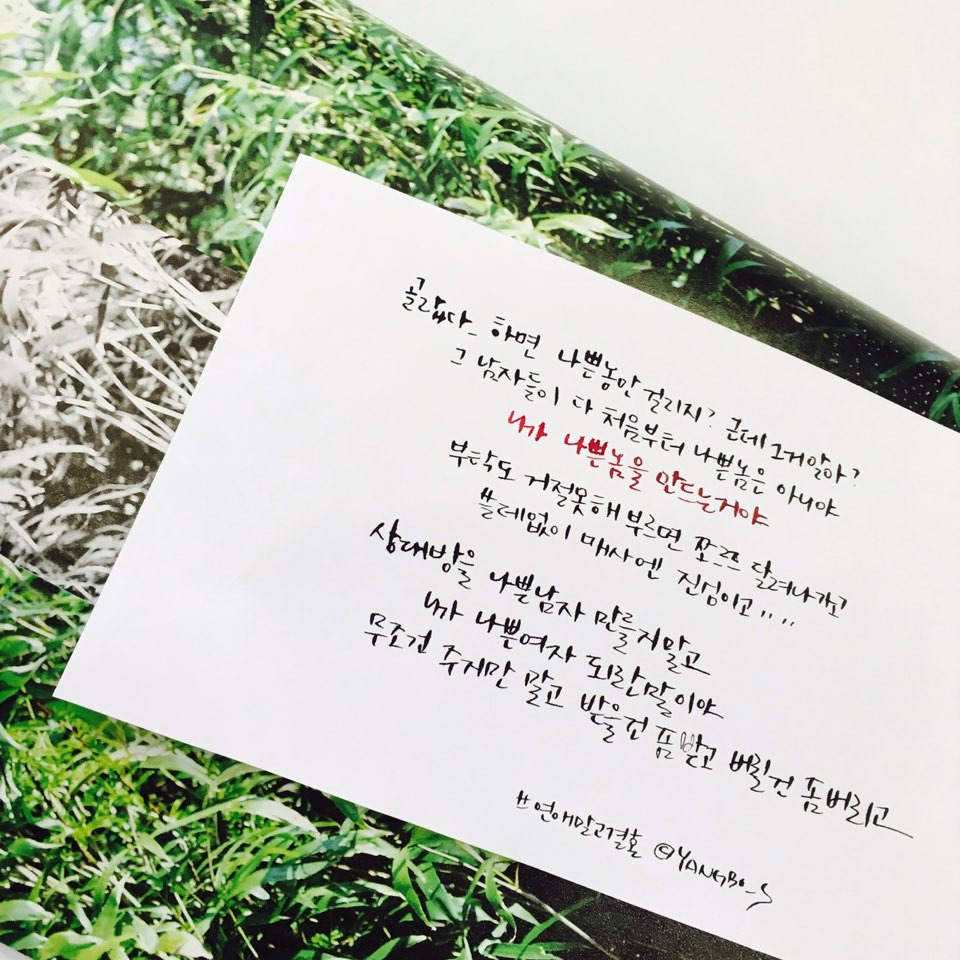 골랐다_ 하면 나쁜놈만 걸리지? 근데 그거알아?
그 남자들이 다 처음부터 나쁜놈은 아니야
니가 나쁜놈을 만드는거야
부탁도 거절못해 부르면 쪼르르 달려나가고
쓸데없이 매사엔 진심이고....
상대방을 나쁜남자 만들지말고
니가 나쁜여자 되란말이야
무조건 주지만 말고 받을건 좀 받고 버릴건 좀버리고
#연애말고결혼 ©YANGBO_S